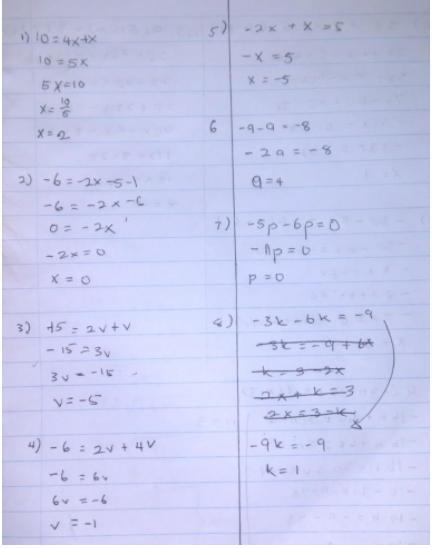 1) 10 = 4x+x
10 = 5x
5x=10
x= 10/5
x=2
2) -6 = -2x -5-1
-6 = -2x -6
0 = -2x
-2x = 0
x = 0
3) -15 = 2v+v
-15 = 3v
3v = -15
v = -5
4) -6 = 2v + 4v
-6 = 6v
6v = -6
v = -1
5) -2x + x = 5
-x = 5
x = -5
6 -a-a = -8
-2a = -8
a=4
7) -5p -6p = 0
-11p = 0
p = 0
8) -3k -6k = -9
-3k = -9 + 6x
k = 3 -2x
2x + k = 3
2x = 3-k
-9k = -9
k = 1